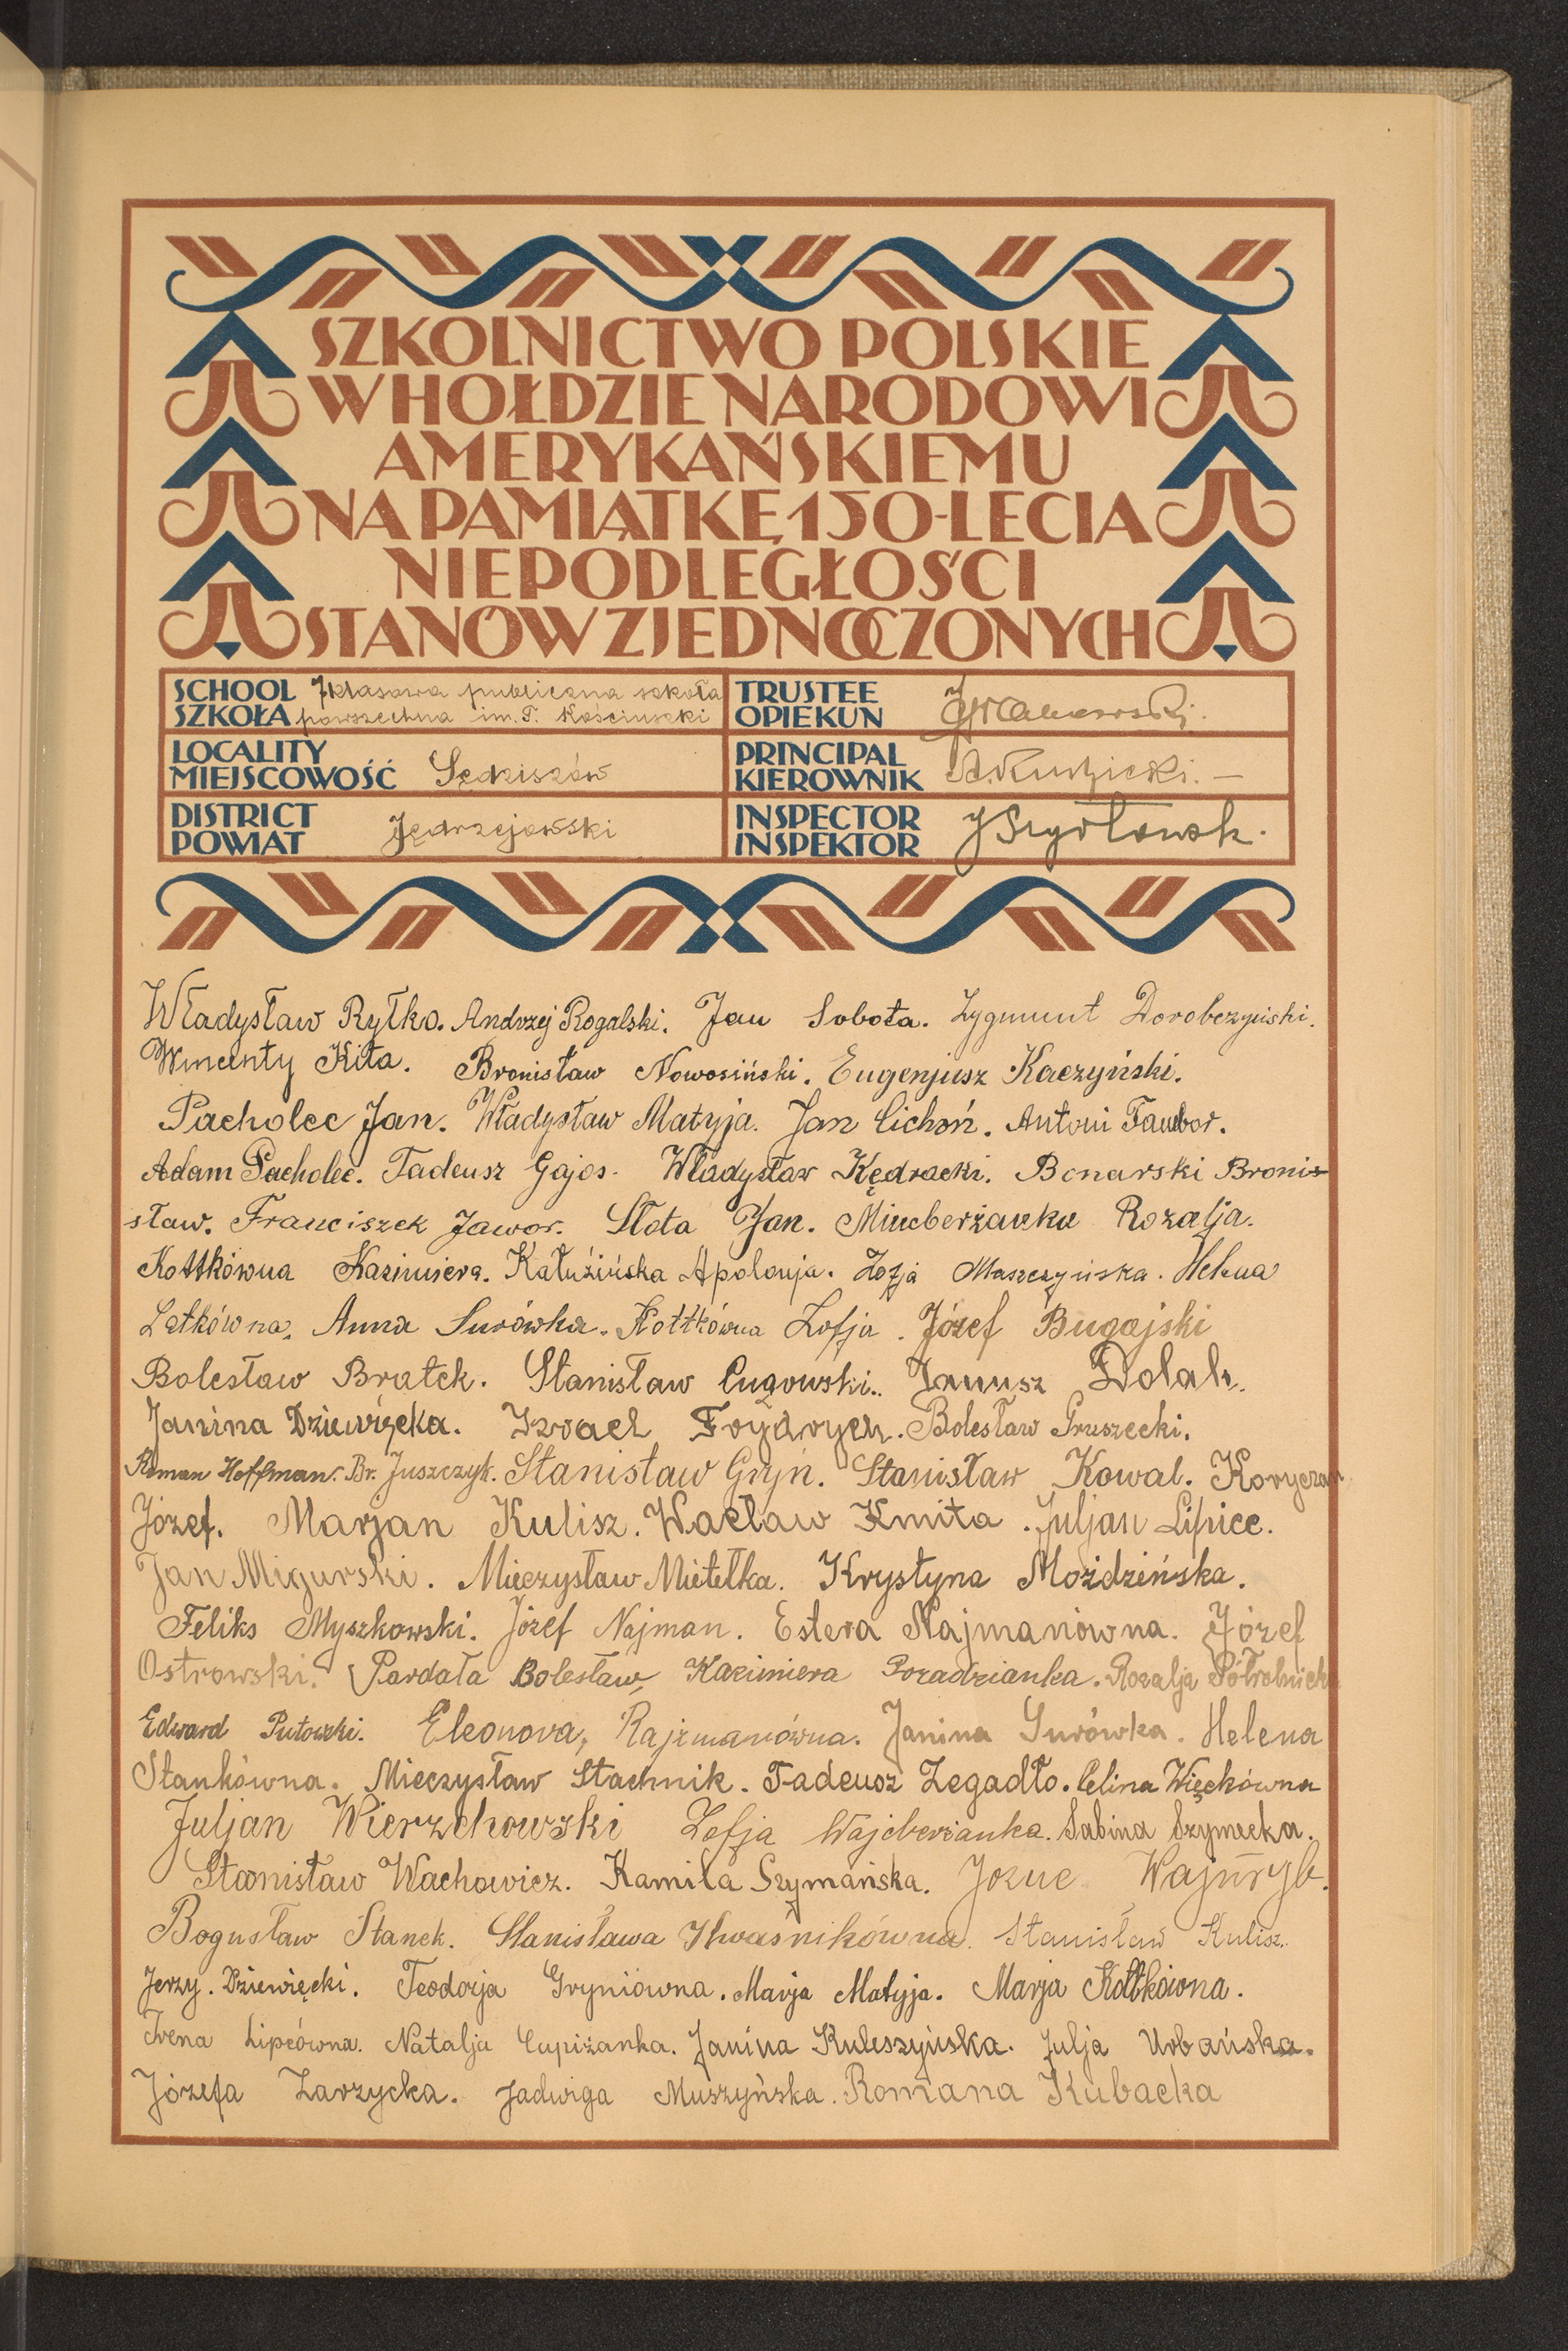 SZKOLNICTWO POLSKIE
W HOŁDZIE NARODOWI
AMERYKAŃSKIEMU
NA PAMIĄTKĘ 150-LECIA
NIEPODLEGŁOŚCI
STANÓW ZJEDNOCZONYCH
SCHOOL
SZKOŁA
7klasowa publiczna szkoła
powszechna im. T. Kościuszki
TRUSTEE
OPIEKUN
LOCALITY
MIEJSCOWOŚĆ
Sędziszów
PRINCIPAL
KIEROWNIK
DISTRICT
POWIAT
Jędrzejowski
INSPECTOR
INSPEKTOR
Władysław Rytko. Andrzej Rogalski. Jan Sobota. Zygmunt Dorobczyński.
Wincenty Kita. Bronisław Nowosiński. Eugenjusz Kaczyński.
Pacholec Jan. Władysław Matyja. Jan Cichoń. Antoni Tambor.
Adam Pacholec. Tadeusz Gajos. Władysław Kędracki. Bonarski Broni-
sław. Franciszek Jawor. Słota Jan. Mincberżanka Rozalja.
Kottkówna Kazimiera. Kałuzińska Apolonja. Zofja Maszczyńska. Helena
Latkówna. Anna Surówka. Kottkówna Zofja. Józef Bugajski
Bolesław Bratek. Stanisław Cugowski. Janusz Dolak.
Janina Dziewięcka. Izrael Frydrych. Bolesław Gruszecki.
Roman Hoffman. Br. Juszczyk. Stanisław Gryń. Stanisław Kowal. Koryczan
Józef. Marjan Kulisz. Wacław Kmita. Juljan Lipiec.
Jan Migurski. Mieczysław Mietelka. Krystyna Możdzińska.
Feliks Myszkowski. Józef Najman. Estera Najmanówna. Józef
Ostrowski. Pardała Bolesław, Kazimiera Poradzianka. Rozalja
Edward Putowski. Eleonora, Rajzmanówna. Janina Surówka. Helena
Stankówna. Mieczysław Stachnik. Tadeusz Zegadło. Celina Więckówna
Juljan Wierzchowski Zofja Wajcberzanka. Sabina Szymecka.
Stanisław Wachowicz. Kamila Szymańska. Jozue Wajnryb.
Bogusław Stanek. Stanisława Kwaśnikówna. Stanisław Kulisz.
Jerzy. Dziewięcki. Teodozja Gryniówna. Marja Matyja. Marja Kottkówna.
Irena Lipcówna. Natalja Cupiżanka. Janina Kuleszyńska. Julja Urbańska.
Józefa Zarzycka. Jadwiga Muszyńska. Romana Kubacka